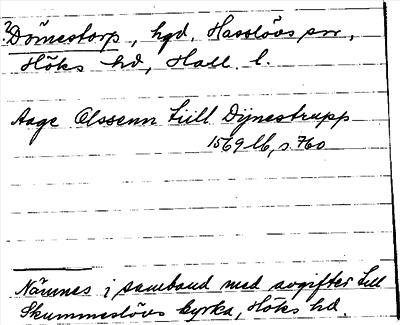 ?Dömestorp, hgd, Hasslövs sn,
Höks hd, Hall. l.
Aage Olssenn till Dijnestrupp
1569 lb, s. 760
Nämnes i samband med avgifter till
Skummeslövs kyrka, Höks hd.